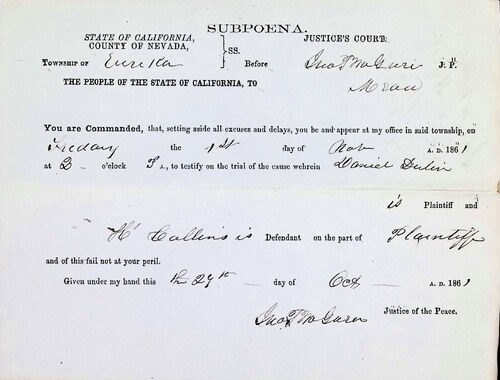 SUBPOENA.
STATE OF CALIFORNIA, JUSTICE'S COURT:
COUNTY OF NEVADA, SS.
TOWNSHIP OF Eureka Before Jno T McGuire J. P.
THE PEOPLE OF THE STATE OF CALIFORNIA, TO
You are Commanded, that, setting aside all excuses and delays, you be and appear at my office in said township, on
Friday the 1st day of Nov A. D. 1861
at 3 o'clock P A., to testify on the trial of the cause wehrein Daniel
is Plaintiff and
H Collins is Defendant on the part of Plaintiff
and of this fail not at your peril.
Given under my hand this the 29th day of Oct A. D. 1861
Jno T McGuire Justice of the Peace.